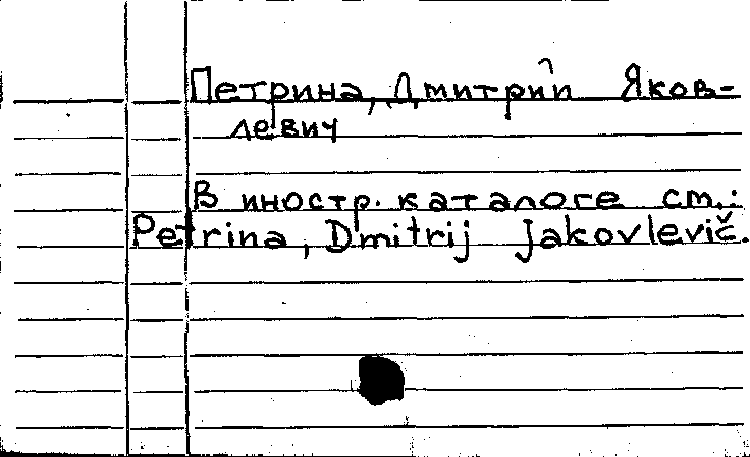 Петрина, Дмитрий Яков-
левич
В иностр. каталоге см.:
Petrina, Dmitrij Jakovlevič.